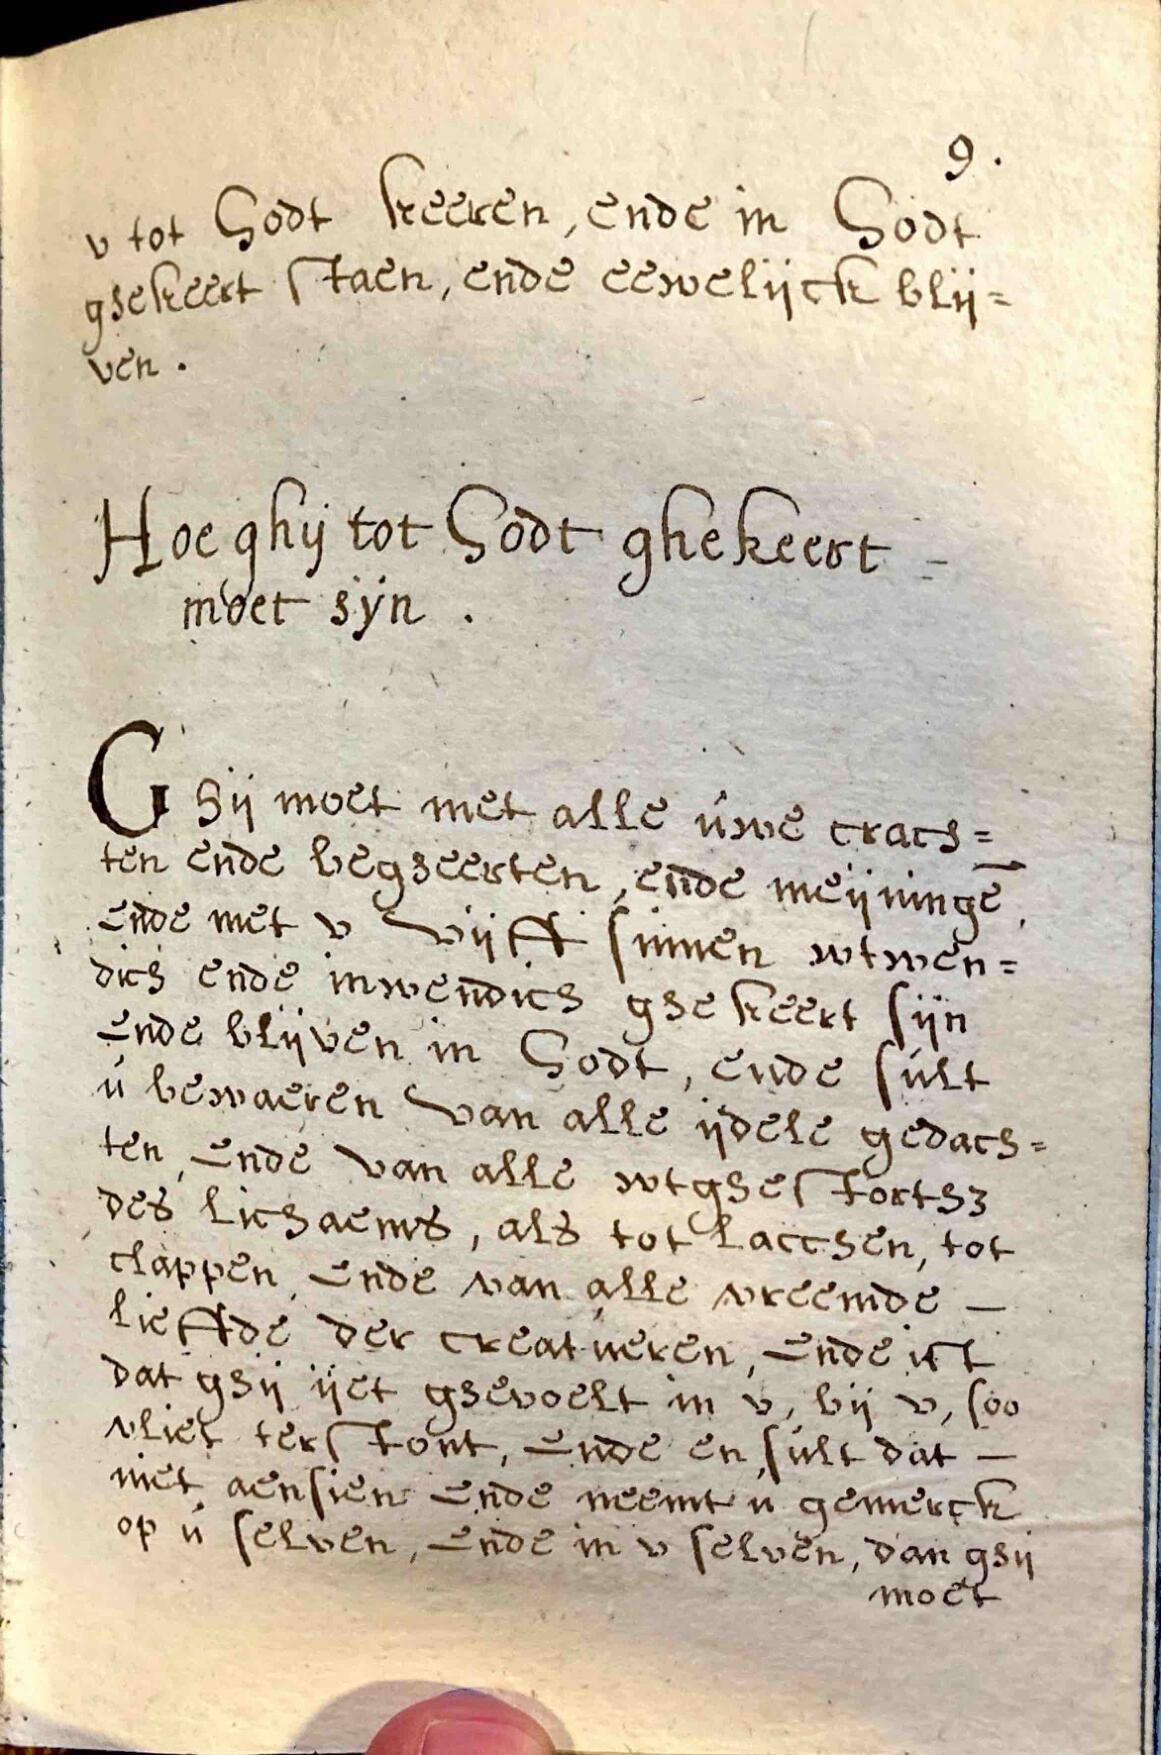 9.
v tot Godt keeren, ende in Godt
ghekeert staen, ende eewelijck blij=
ven.
Hoe ghij tot Godt ghekeert =
moet sÿn.
Ghij moet met alle úwe crach=
ten ende begheerten, ende meijningē,
ende met v vijff sinnen wtwen=
dich ende inwendich ghekeert sijn
ende blijven in Godt, ende súlt
ú bewaeren van alle ijdele gedach=
ten, ende van alle wtghestorth3
des lichaems, als tot lacchen, tot
clappen, ende van alle vreemde —
lieffde der creatueren, ende ist
dat ghij ijet ghevoelt in v, bij v, soo
vliet terstont, ende en súlt dat —
niet aensien ende neemt u gemerck
op ú selven, ende in v selven, dan ghij
moet